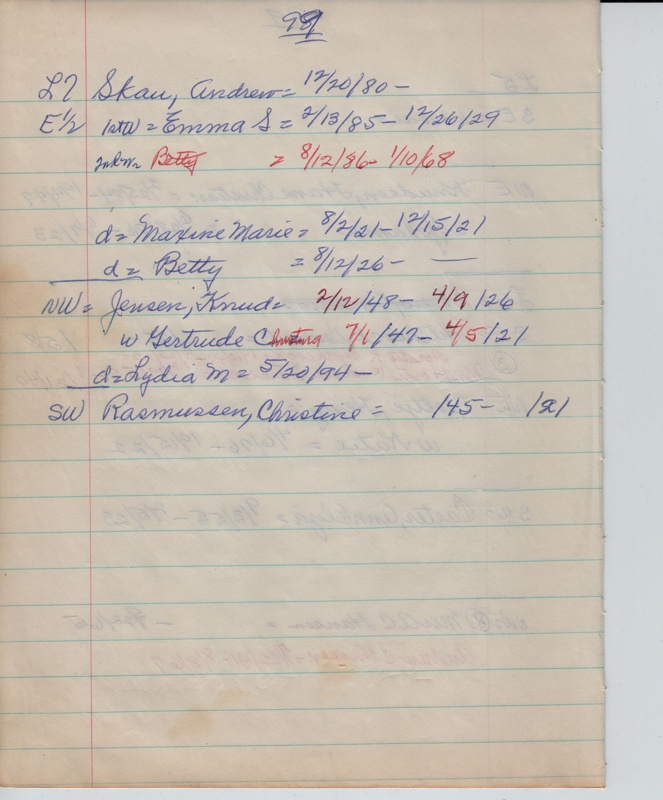 98
L7 Skau, Andrew = 12/20/80 -
E 1/2 1st W = Emma S = 2/13/85 - 12/26/29
2nd W Betty = 8/12/86 - 1/10/68
d = Maxine Marie = 8/2/21 - 12/15/21
d = Betty = 8/12/26 - —
NW = Jensen, Knud = 2/12/48 - 4/9/26
W Gertrude Christina 7/1/47 - 4/5/21
d = Lydia M = 5/20/94 -
SW Rasmussen, Christine = /45 - /21